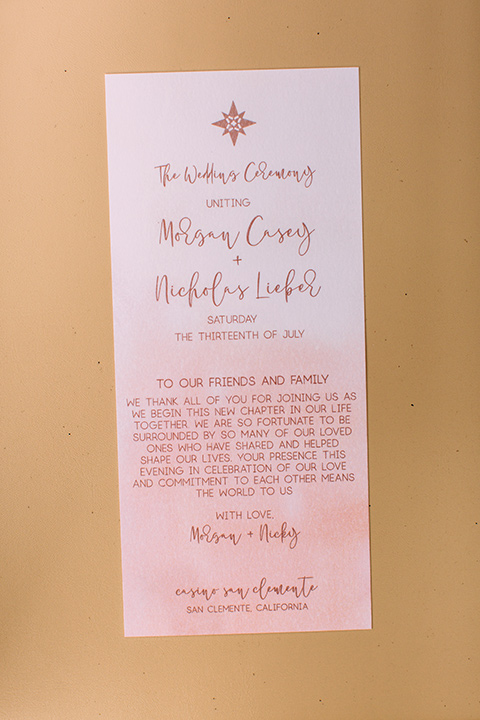 The Wedding Ceremony
UNITING
Morgan Casey
+
Nicholas Lieber
SATURDAY
THE THIRTEENTH OF JULY
TO OUR FRIENDS AND FAMILY
WE THANK ALL OF YOU FOR JOINING US AS
WE BEGIN THIS NEW CHAPTER IN OUR LIFE
TOGETHER. WE ARE SO FORTUNATE TO BE
SURROUNDED BY SO MANY OF OUR LOVED
ONES WHO HAVE SHARED AND HELPED
SHAPE OUR LIVES. YOUR PRESENCE THIS
EVENING IN CELEBRATION OF OUR LOVE
AND COMMITMENT TO EACH OTHER MEANS
THE WORLD TO US
WITH LOVE,
Morgan + Nicky
casino san clemente
SAN CLEMENTE, CALIFORNIA